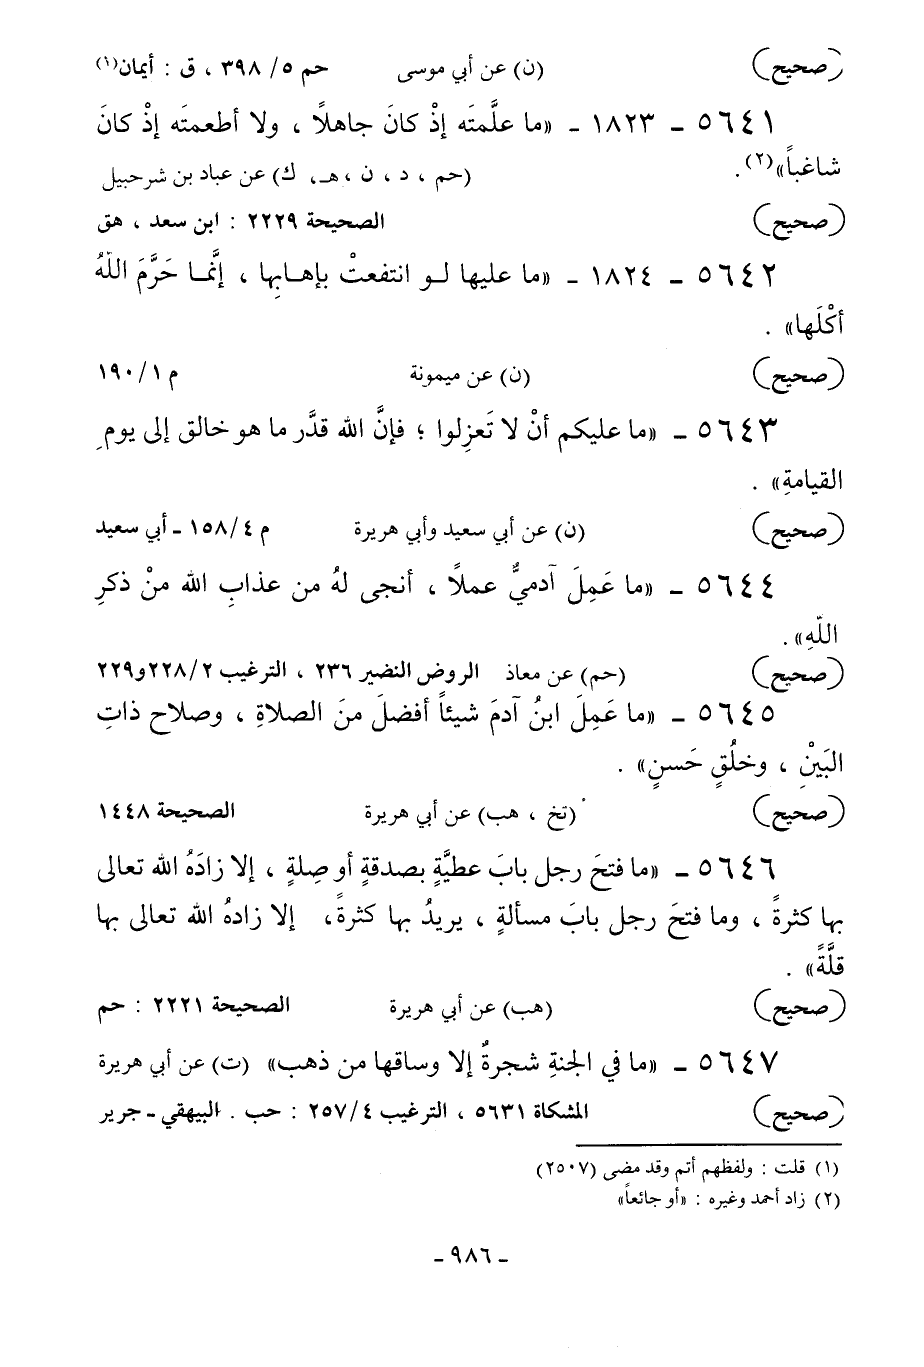 (صحيح) (ن) عن أبي موسى حم ٥/ ٣٩٨ ، ق : أيمان(١)
٥٦٤١ ـ ١٨٢٣ ـ «ما علَّمتَه إذْ كانَ جاهلاً ، ولا أطعمتَه إذْ كانَ
شاغباً»(٢) . (حم ، د ، ن ، هـ، ك) عن عباد بن شرحبيل
(صحيح) الصحيحة ٢٢٢٩ : ابن سعد ، هق
٥٦٤٢ ـ ١٨٢٤ ـ «ما عليها لـو انتفعتْ بإهـابِها ، إنَّمـا حَرَّمَ اللهُ
أكْلَها» .
(صحيح) (ن) عن ميمونة م ١/ ١٩٠
٥٦٤٣ ـ «ما عليكم أنْ لا تَعزِلوا ؛ فإنَّ الله قدَّر ما هو خالق إلى يومِ
القيامةِ» .
(صحيح) (ن) عن أبي سعيد وأبي هريرة م ٤/ ١٥٨ ـ أبي سعيد
٥٦٤٤ ـ «ما عَمِلَ آدميٌّ عملاً ، أنجى لهُ من عذابِ الله منْ ذكرِ
اللّهِ» .
(صحيح) (حم) عن معاذ الروض النضير ٢٣٦ ، الترغيب ٢/ ٢٢٨و٢٢٩
٥٦٤٥ ـ «ما عَمِلَ ابنُ آدمَ شيئاً أفضلَ منَ الصلاةِ ، وصلاح ذاتِ
البَيْنِ ، وخلُقٍ حَسنٍ» .
(صحيح) (تخ ، هب) عن أبي هريرة الصحيحة ١٤٤٨
٥٦٤٦ ـ «ما فتحَ رجل بابَ عطيَّةٍ بصدقةٍ أو صِلةٍ ، إلا زادَهُ الله تعالى
بها كثرةً ، وما فتحَ رجل بابَ مسألةٍ ، يريدُ بها كثرةً، إلا زادهُ الله تعالى بها
قلَّةً» .
(صحيح) (هب) عن أبي هريرة الصحيحة ٢٢٢١ : حم
٥٦٤٧ ـ «ما في الجنةِ شجرةٌ إلا وساقها من ذهب» (ت) عن أبي هريرة
(صحيح) المشكاة ٥٦٣١ ، الترغيب ٤/ ٢٥٧ : حب . البيهقي - جرير
(١) قلت : ولفظهم أتم وقد مضى (٢٥٠٧)
(٢) زاد أحمد وغيره : «أو جائعاً»
ـ ٩٨٦ ـ